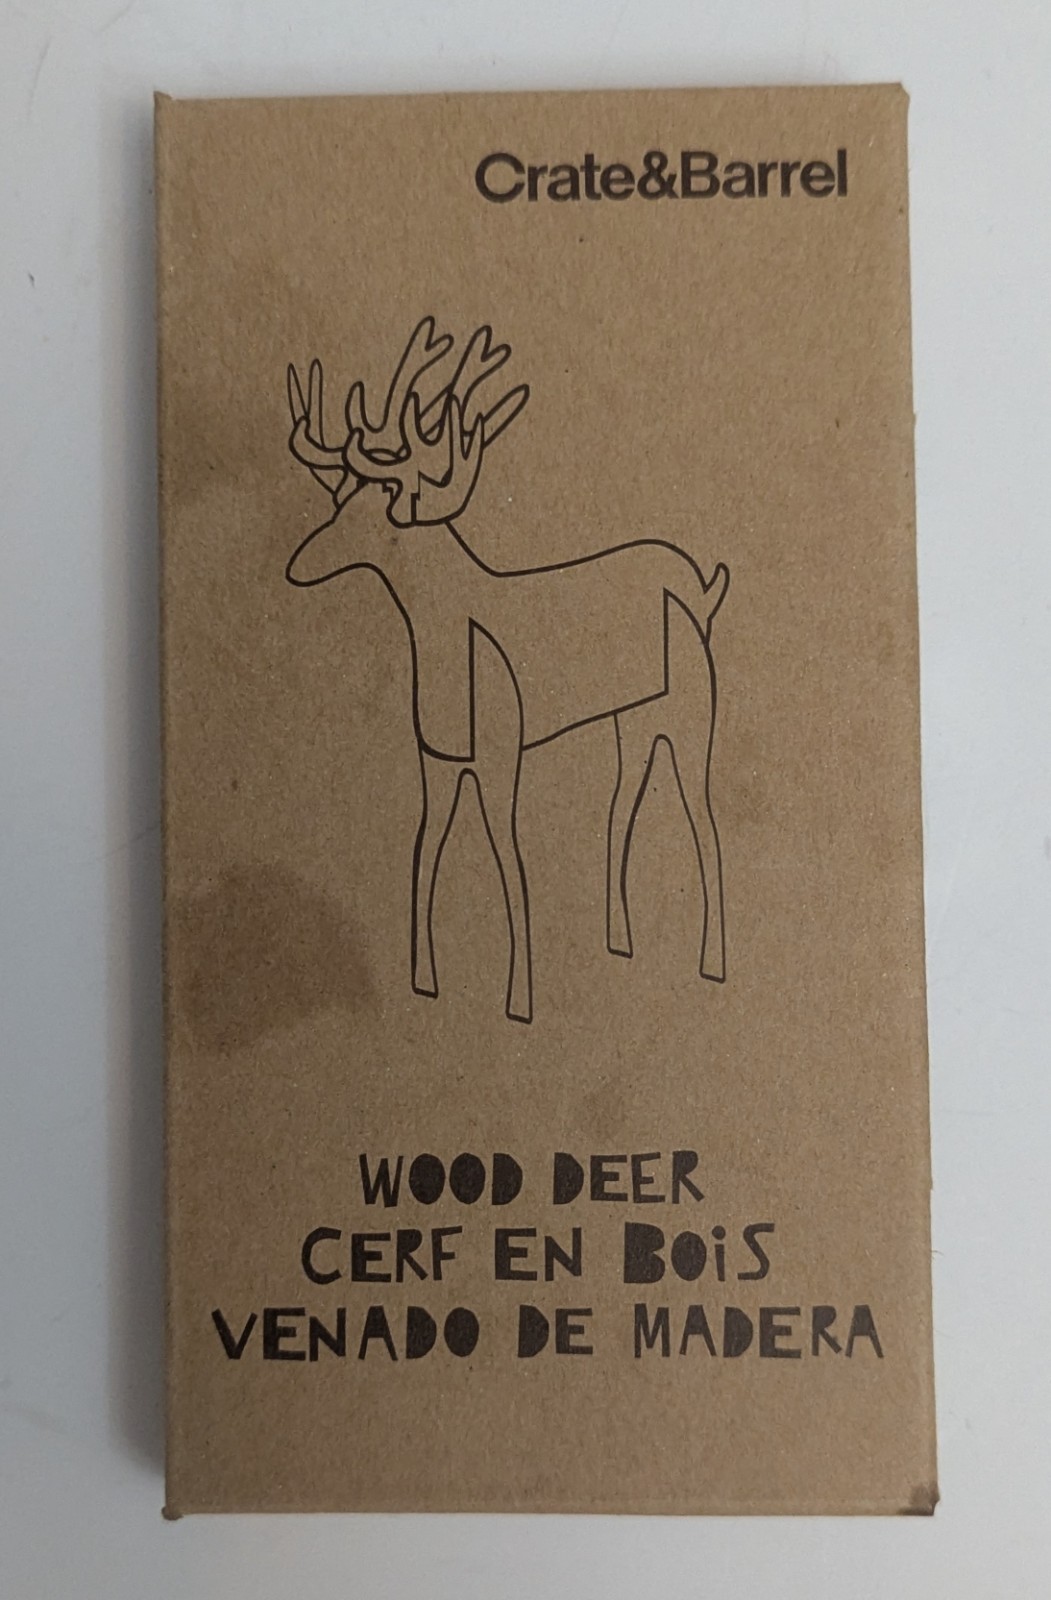 Crate&Barrel
WOOD DEER
CERF EN BOiS
VENADO DE MADERA